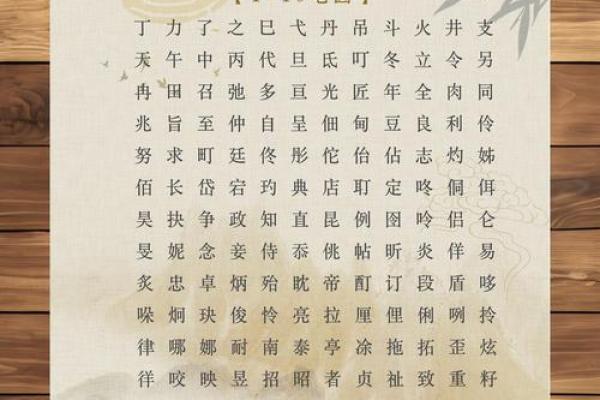 丁力了之巳弋丹吊斗火井支
天午中丙代旦氐叮冬立令另
冉田召弛多亘光匠年全肉同
兆旨至仲自呈佃甸豆良利伶
努求町廷佟彤佗佁佔志灼姊
佰长岱宕玓典店耵定咚侗佴
昊抉争政知直昆例图呤侣仑
旻妮念妾侍忝佻帖昕炎佯易
炙忠卓炳殆眈帝酊订段盾哆
哚炯玦俊怜亮拉厘俚俐咧拎
律哪娜耐南泰亭凃拖拓歪炫
徉咬映昱招昭者贞祉致重籽